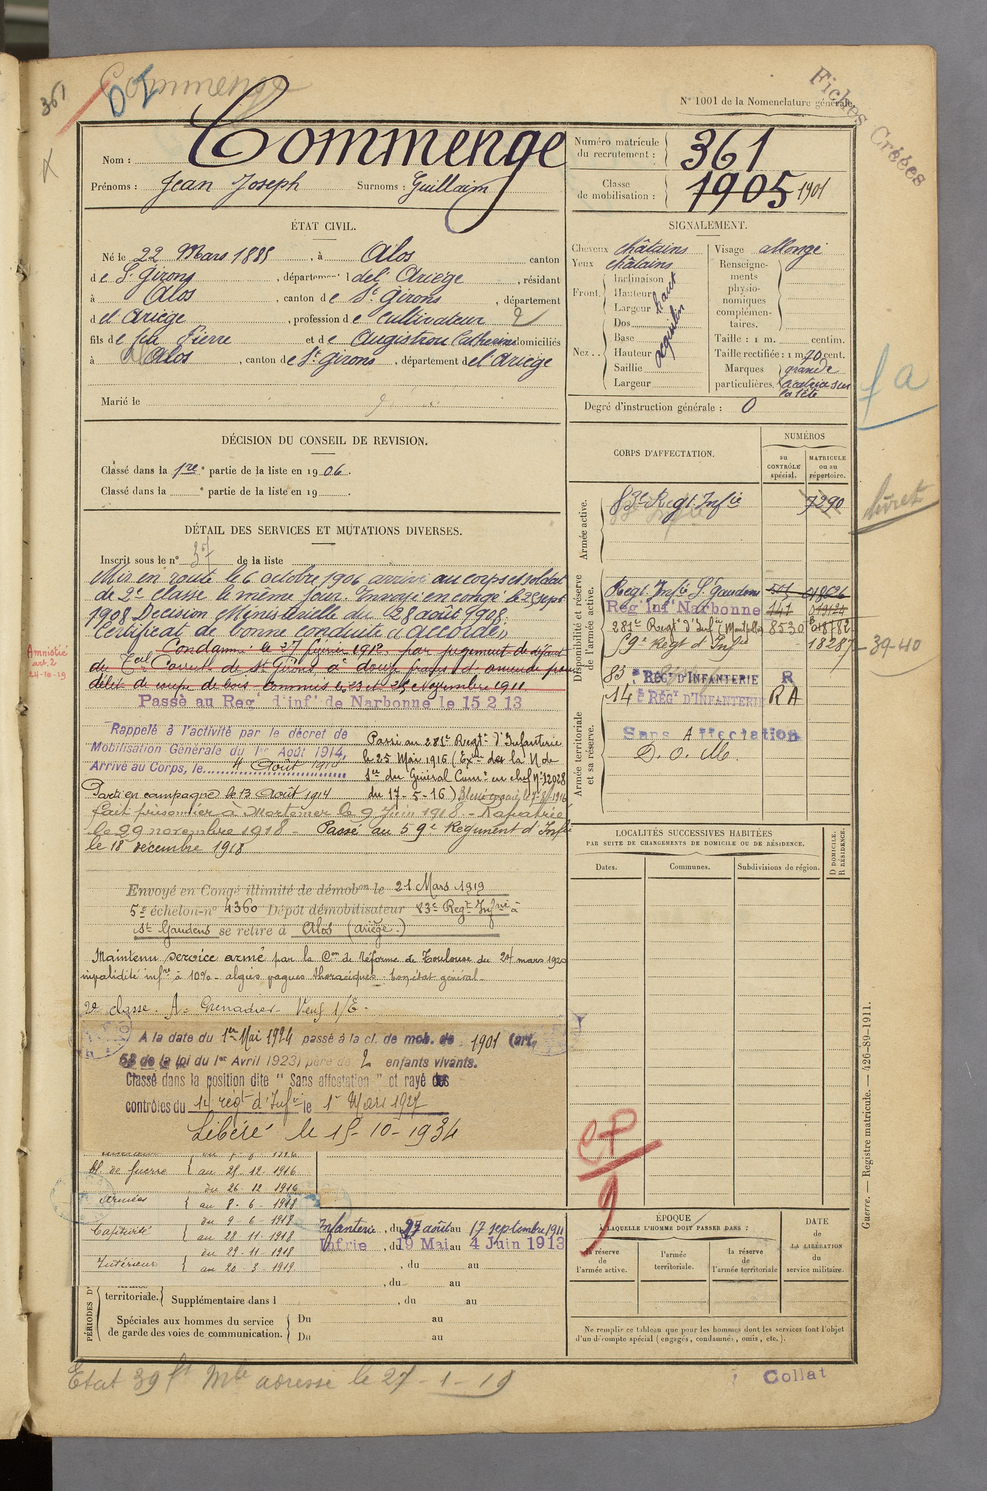 361
Commenge
N° 1001 de la Nomenclature générale.
Fiches Créées
Nom : Commenge
Prénoms : Jean Joseph Surnoms : Guillaim
Numéro matricule du recrutement : 361
Classe de mobilisation : 1905 1901
ÉTAT CIVIL.
Né le 22 Mars 1885, à Alos canton
de St Girons, département del' Ariège, résidant
à Alos, canton de St Girons, département
d el Ariège, profession de Cultivateur 2
fils de feu Pierre et de Augistrou Catherine domiciliés
à Alos, canton de St Girons, département del' Ariège
Marié le
SIGNALEMENT.
Cheveux châtains
Yeux châtains
Front. Inclinaison
Hauteur haut
Largeur
Nez. Dos aquilin
Base
Hauteur
Saillie
Largeur
Visage allongé
Renseignements physionomiques complémentaires.
Taille : 1 m. centim.
Taille rectifiée : 1 m. 70 cent.
Marques particulières. grande cicatrice sur la tête
Degré d'instruction générale : 0
fa
DÉCISION DU CONSEIL DE REVISION.
Classé dans la 1re partie de la liste en 1906.
Classé dans la e partie de la liste en 19
DÉTAIL DES SERVICES ET MUTATIONS DIVERSES.
Inscrit sous le n° 37 de la liste
Mis en route le 6 octobre 1906 arrivé au corps et soldat
de 2e classe le même jour. Envoyé en congé le 25 sept
1908 Décision Ministérielle du 28 août 1908.
Certificat de bonne conduite "accordé"
Amnistié
art. 2
24-10-19
Condamné le 27 février 1912 par jugement de défaut
du Tral Correct. de St Girons à douze francs d'amende pour
délit de coupe de bois, commis les 23 et 25 Novembre 1911.
Passé au Reg d'inf de Narbonne le 15 2 13
Rappelé à l'activité par le décret de
Mobilisation Générale du 1er Août 1914,
Arrivé au Corps, le 4 Août 1914
Passé au 281e Regt d'Infanterie
le 25 Mai 1916 (Exon de la N de
Sce du Général Comt en chef N° 12028
du 17-5-16)
Parti en campagne le 13 Août 1914
Fait prisonnier à Mortemer le 9 Juin 1918 - Rapatrié
le 29 novembre 1918 - Passé au 59e Régiment d'Infie
le 18 décembre 1918
Envoyé en Congé illimité de démobon le 21 Mars 1919
5e échelon n° 4360 Dépôt démobilisateur 83e Regt Infrie à
St Gaudens se retire à Alos (Ariège.)
Maintenu service armé par la Con de Réforme de Toulouse du 24 mars 1920
invalidité infre à 10% - algies vagues thoraciques. bon état général.
2e classe. A= Grenadier.
A la date du 1er Mai 1924 passé à la cl. de mob. de 1901 (art.
58 de la loi du 1er Avril 1923) père de 2 enfants vivants.
Classé dans la position dite "Sans affectation" et rayé des
contrôles du 14 régt d'Infie le 1er Mars 1927
Libéré le 15-10-1934
CORPS D'AFFECTATION.
NUMÉROS
au CONTRÔLE spécial.
MATRICULE ou au répertoire.
Armée active.
83e Regt Infie 7290
Disponibilité et réserve de l'armée active.
Regt Infie St Gaudens
Reg Inf Narbonne 141
281e Regt d'Infie (Montpellier) 8530
59e Regt d'Inf 18287
39-40
livret
83 e RÉGT D'INFANTERIE R
14 e RÉGT D'INFANTERIE RA
Armée territoriale et sa réserve.
Sans Affectation
D. O. M.
LOCALITÉS SUCCESSIVES HABITÉES
PAR SUITE DE CHANGEMENTS DE DOMICILE OU DE RÉSIDENCE.
Dates. Communes. Subdivisions de région.
D DOMICILE. R RÉSIDENCE.
Bl. de guerre au 25-12-1916
du 26-12-1916
Armées au 8-6-1918
Captivité du 9-6-1918
au 28-11-1918
Intérieur du 29-11-1918
au 20-3-1919
Infanterie, du 27 août au 17 septembre 1911
Infrie, du 19 Mai au 4 Juin 1913
, du au
, du au
territoriale. Supplémentaire dans l , du au
PÉRIODES D'
Spéciales aux hommes du service de garde des voies de communication. Du au
Du au
ÉPOQUE
À LAQUELLE L'HOMME DOIT PASSER DANS :
la réserve de l'armée active.
l'armée territoriale.
la réserve de l'armée territoriale
DATE de LA LIBÉRATION du service militaire.
Ne remplir ce tableau que pour les hommes dont les services font l'objet
d'un décompte spécial (engagés, condamnés, omis, etc.).
Guerre. — Registre matricule. — 426-S9-1911.
Etat 39 ft Mle adresse le 27-1-19
Collat